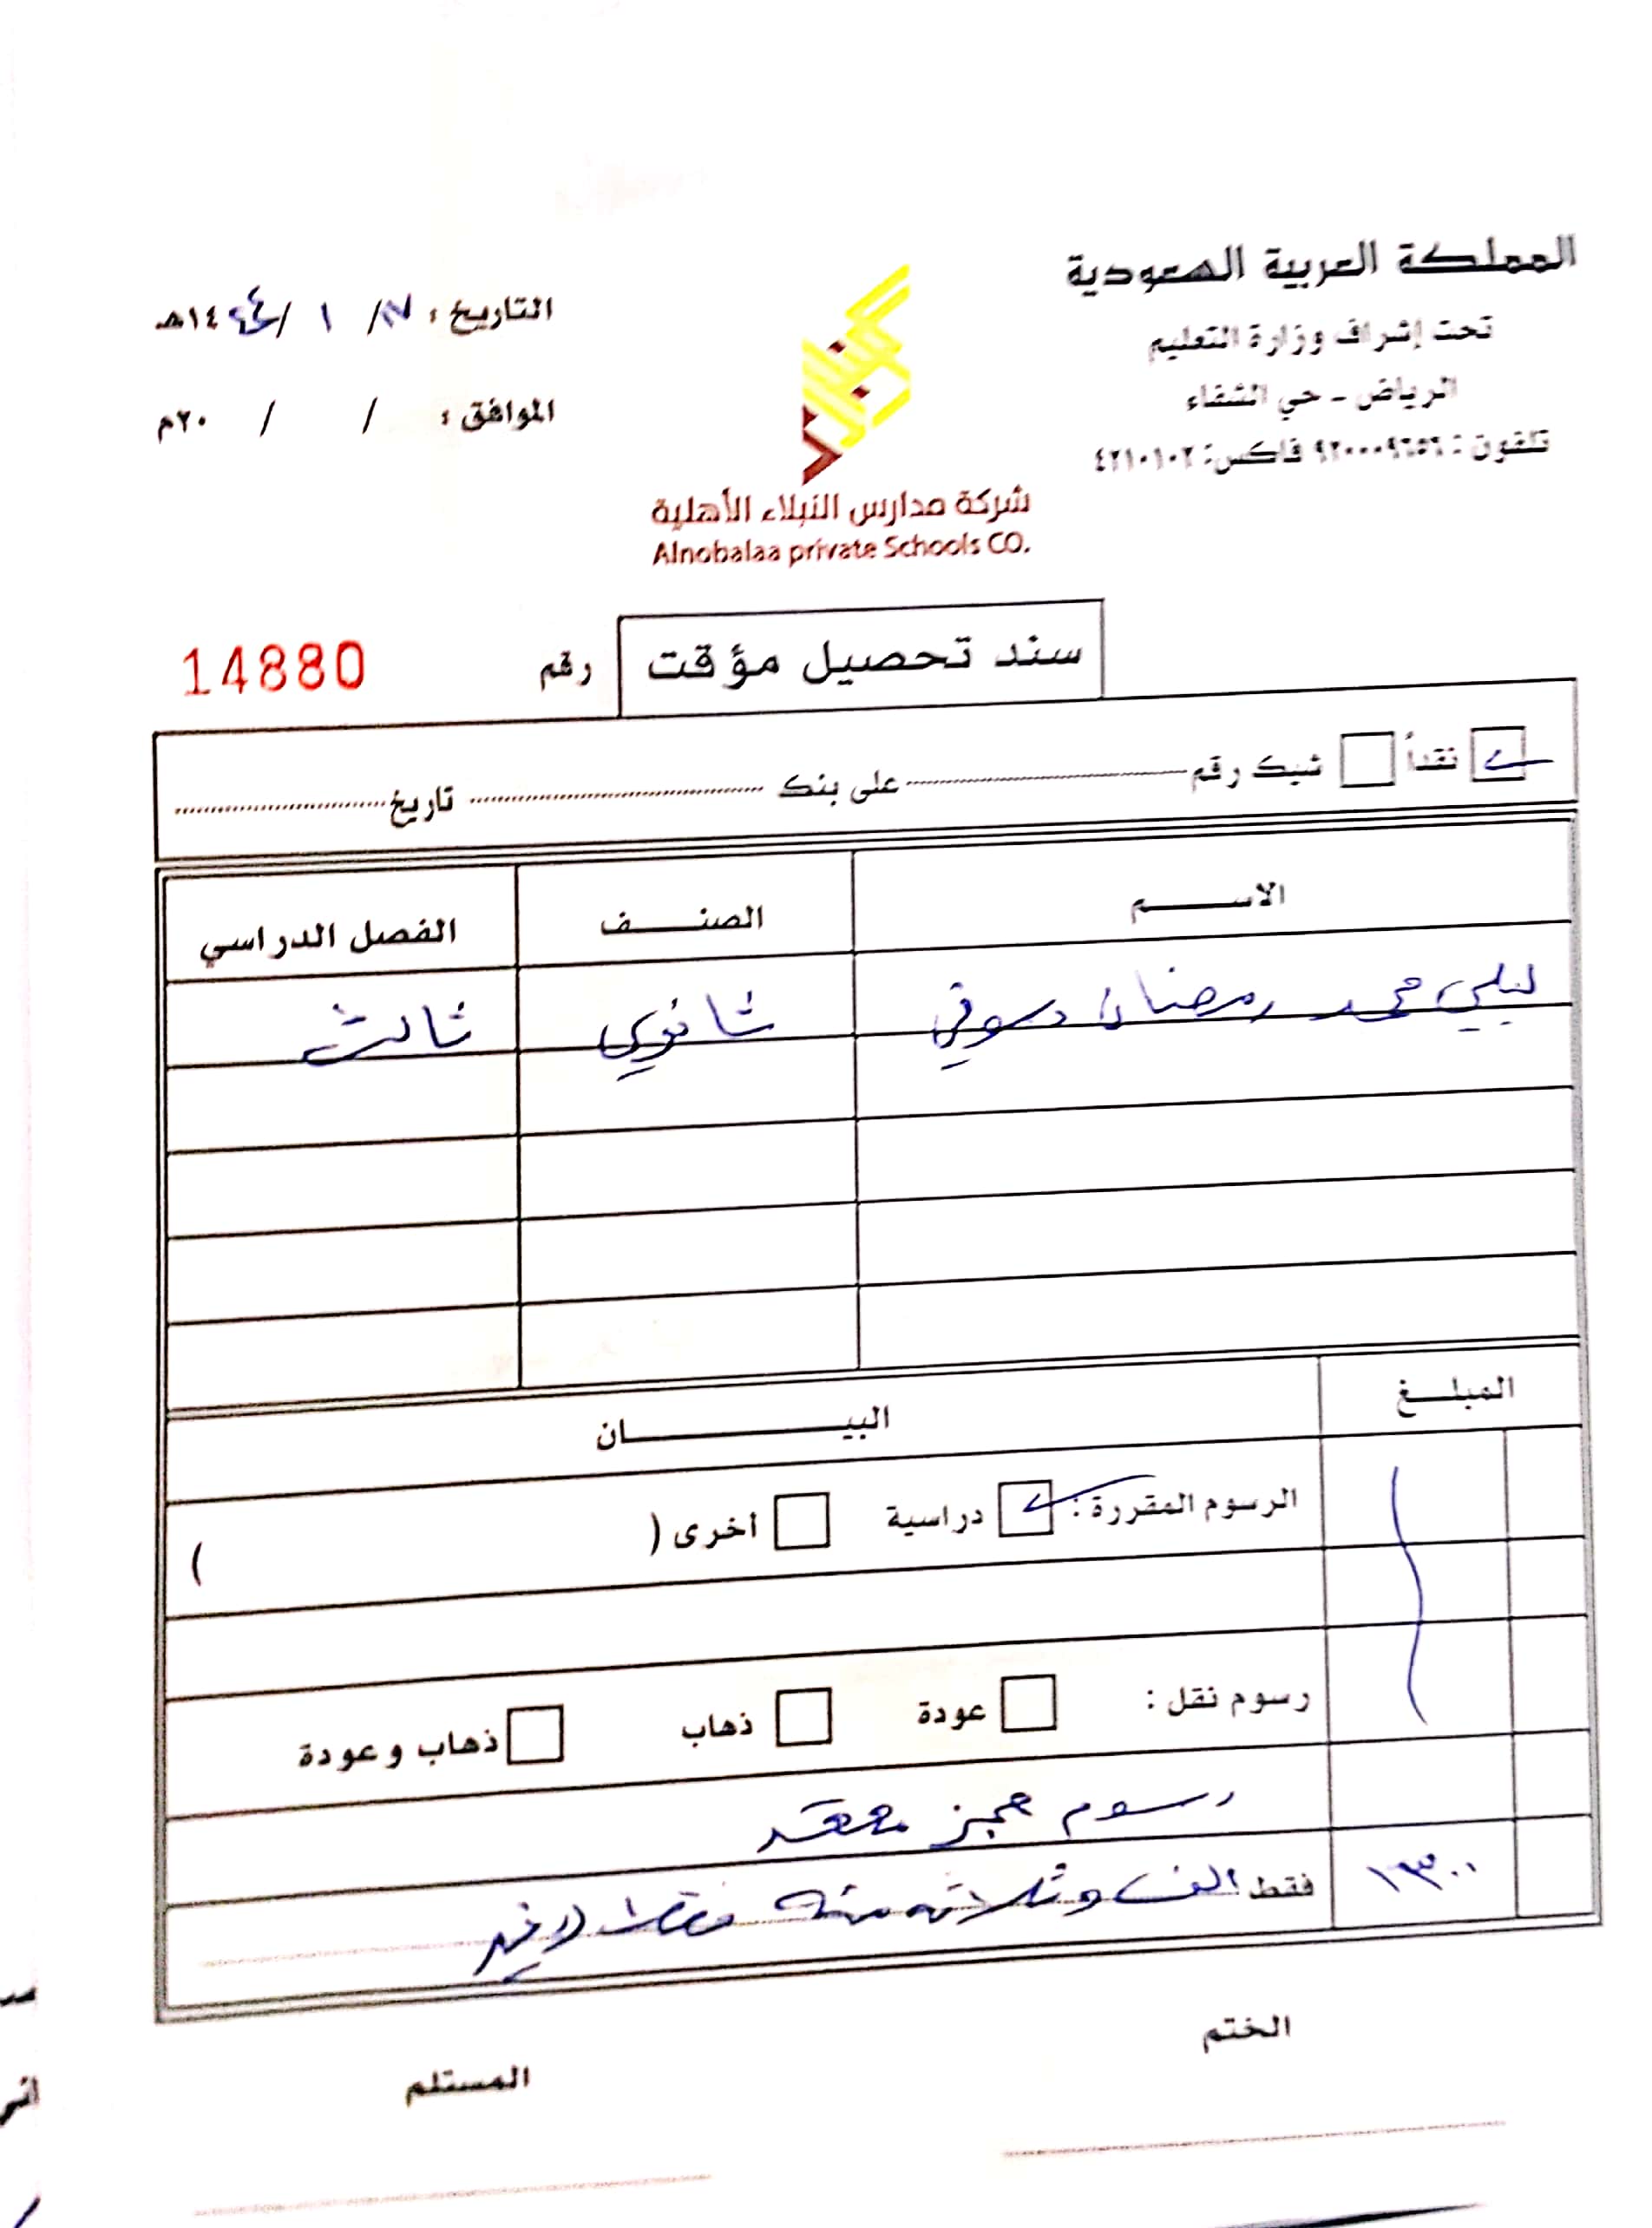 المملكة العربية السعودية
تحت إشراف وزارة التعليم
الرياض - حي الشفاء
تلفون : ٩٢٠٠٠٩٦٥٦ فاكس: ٤٢١٠١٠٢
التاريخ : ١٧/ ١ /١٤٤٤هـ
الموافق : / / ٢٠م
شركة مدارس النبلاء الأهلية
Alnobalaa private Schools CO.
سند تحصيل مؤقت رقم 14880
نقداً شيك رقم على بنك تاريخ
الاسم الصنف الفصل الدراسي
ليلى محمد رمضان دسوقي ثانوي ثالث
المبلغ البيان
الرسوم المقررة : دراسية أخرى ( )
رسوم نقل : عودة ذهاب ذهاب وعودة
رسوم حجز مقعد
١٣٠٠ فقط الف وثلاثمئة فقط لا غير
الختم
المستلم